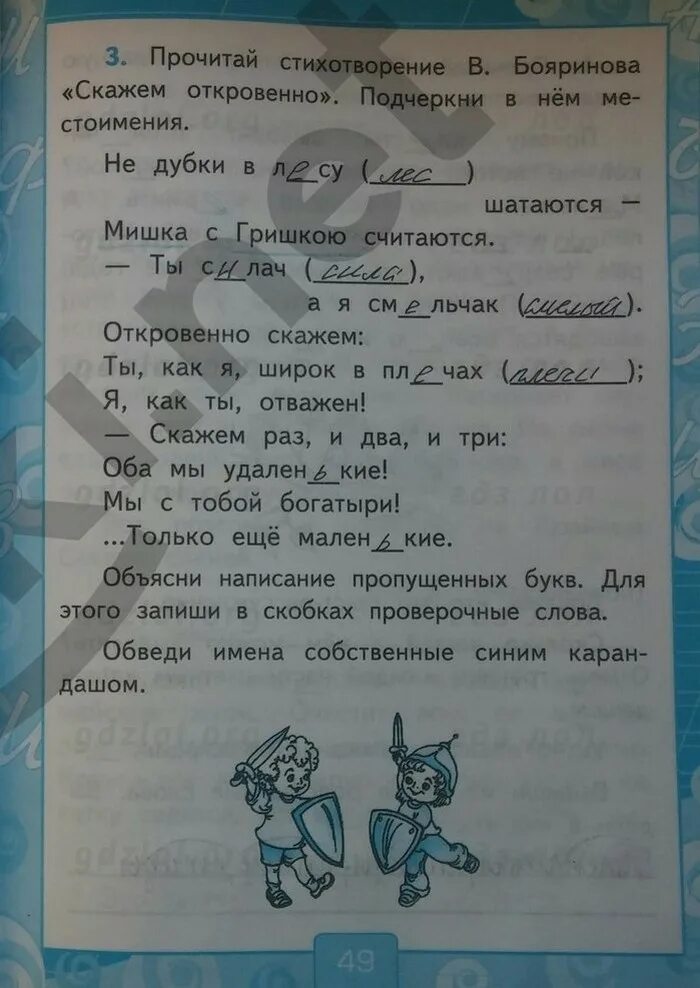 3. Прочитай стихотворение В. Бояринова
«Скажем откровенно». Подчеркни в нём ме-
стоимения.
Не дубки в лесу (лес)
шатаются —
Мишка с Гришкою считаются.
— Ты силач (сила),
а я смельчак (смелый).
Откровенно скажем:
Ты, как я, широк в плечах (плечи);
Я, как ты, отважен!
— Скажем раз, и два, и три:
Оба мы удаленькие!
Мы с тобой богатыри!
...Только ещё маленькие.
Объясни написание пропущенных букв. Для
этого запиши в скобках проверочные слова.
Обведи имена собственные синим каран-
дашом.
49